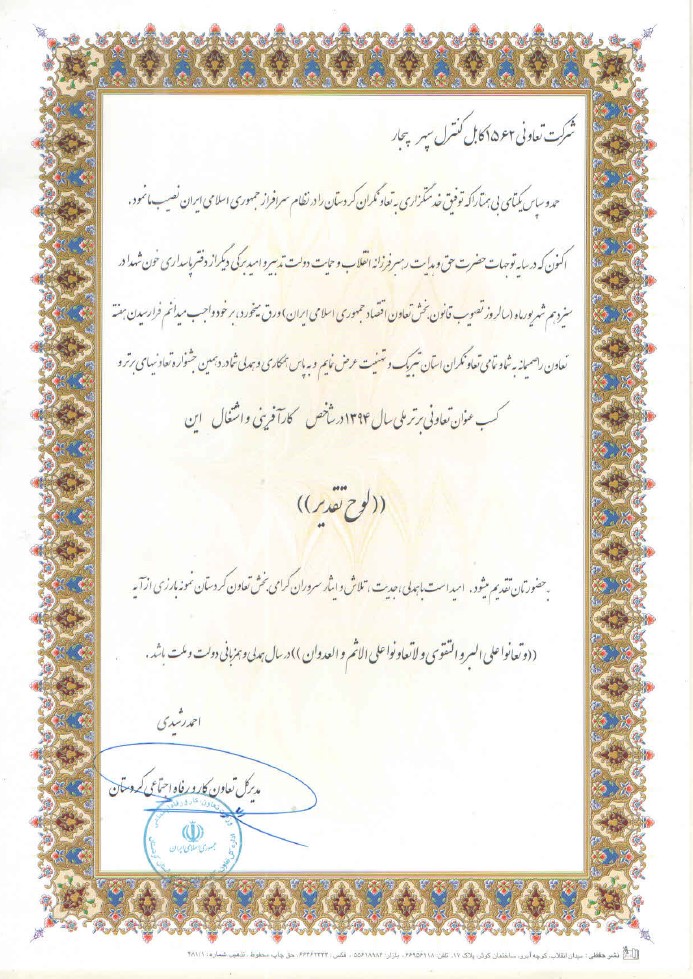 شرکت تعاونی ۱۵۶۲ کابل کنترل سپهر بیجار
حمد و سپاس یکتای بی همتا را که توفیق خدمتگزاری به تعاونگران کردستان را در نظام سرافراز جمهوری اسلامی ایران نصیب ما نمود.
اکنون که در سایه توجهات حضرت حق و هدایت رهبر فرزانه انقلاب و حمایت دولت تدبیر و امید برگی دیگر از دفتر پاسداری خون شهدا در
سیزدهم شهریورماه (سالروز تصویب قانون بخش تعاون اقتصاد جمهوری اسلامی ایران) ورق میخورد، بر خود واجب میدانم فرارسیدن هفته
تعاون را صمیمانه به شما و تمامی تعاونگران استان تبریک و تهنیت عرض نمایم و به پاس همکاری و همدلی شما در دهمین جشنواره تعاونیهای برتر و
کسب عنوان تعاونی برتر ملی سال ۱۳۹۴ در شاخص کارآفرینی و اشتغال این
((لوح تقدیر))
به حضورتان تقدیم میشود. امید است با همدلی، جدیت، تلاش و ایثار سروران گرامی بخش تعاون کردستان نمونه بارزی از آیه
((و تعانوا علی البر و التقوی و لا تعاونوا علی الاثم و العدوان)) در سال همدلی و همزبانی دولت و ملت باشد.
احمد رشیدی
مدیرکل تعاون کار و رفاه اجتماعی کردستان
جمهوری اسلامی ایران
نشر حافظی : میدان انقلاب، کوچه آبری، ساختمان کوثر، پلاک ۱۷، تلفن: ۶۶۹۵۶۱۱۸ ، بازار: ۵۵۶۱۸۹۸۶ ، فکس: ۶۶۴۶۲۳۳۳، حق چاپ محفوظ ، تذهیب شماره: ۴۸۱/۱